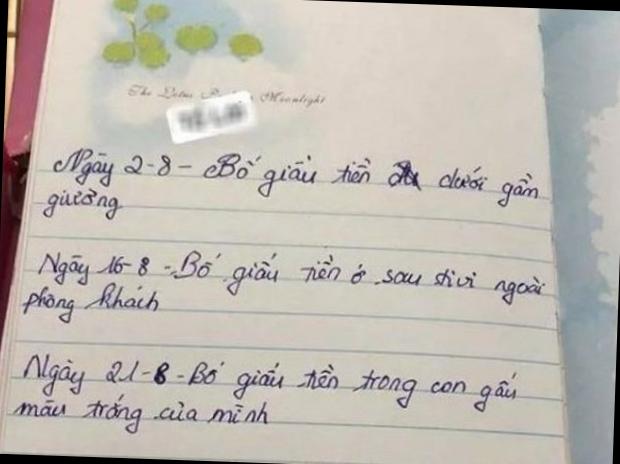 The Lotus Moonlight
Ngày 2-8 - Bố giấu tiền dưới gầm
giường
Ngày 16-8 - Bố giấu tiền ở sau tivi ngoài
phòng khách
Ngày 21-8 - Bố giấu tiền trong con gấu
màu trắng của mình